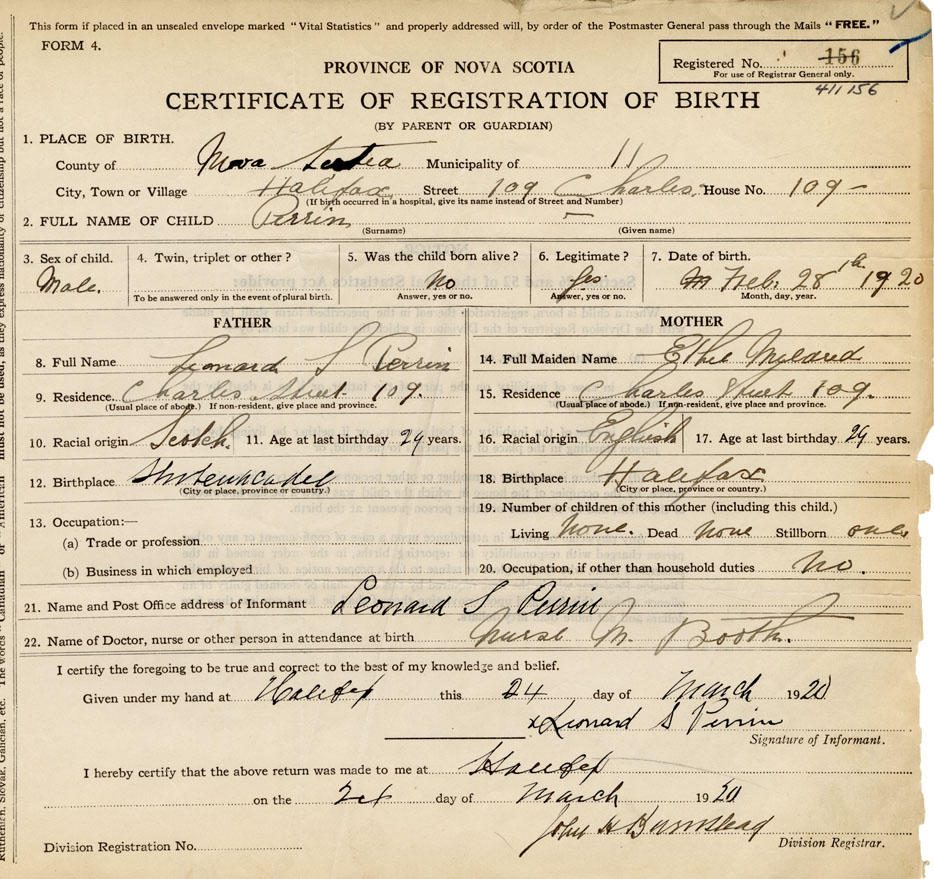 This form if placed in an unsealed envelope marked "Vital Statistics" and properly addressed will, by order of the Postmaster General pass through the Mails "FREE."
FORM 4.
Registered No. 156
For use of Registrar General only.
411156
PROVINCE OF NOVA SCOTIA
CERTIFICATE OF REGISTRATION OF BIRTH
(BY PARENT OR GUARDIAN)
1. PLACE OF BIRTH.
County of Nova Scotia Municipality of 11
City, Town or Village Halifax Street 109 Charles. House No. 109-
(If birth occurred in a hospital, give its name instead of Street and Number)
2. FULL NAME OF CHILD Perrin —
(Surname) (Given name)
3. Sex of child. 4. Twin, triplet or other? 5. Was the child born alive? 6. Legitimate? 7. Date of birth.
Male. No Yes Feb. 28th 1920
To be answered only in the event of plural birth. Answer, yes or no. Answer, yes or no. Month, day, year.
FATHER MOTHER
8. Full Name Leonard S Perrin 14. Full Maiden Name Ethel
9. Residence. Charles Street 109. 15. Residence Charles Street 109.
(Usual place of abode.) If non-resident, give place and province. (Usual place of abode.) If non-resident, give place and province.
10. Racial origin Scotch 11. Age at last birthday 29 years. 16. Racial origin English 17. Age at last birthday 29 years.
12. Birthplace 18. Birthplace Halifax
(City or place, province or country.) (City or place, province or country.)
19. Number of children of this mother (including this child.)
13. Occupation:— Living none. Dead none Stillborn one.
(a) Trade or profession
(b) Business in which employed 20. Occupation, if other than household duties no.
21. Name and Post Office address of Informant Leonard S Perrin
22. Name of Doctor, nurse or other person in attendance at birth nurse M. Booth.
I certify the foregoing to be true and correct to the best of my knowledge and belief.
Given under my hand at Halifax this 24 day of March 1920
x Leonard S Perrin
Signature of Informant.
I hereby certify that the above return was made to me at Halifax
on the 24 day of March 1920
John H
Division Registration No. Division Registrar.